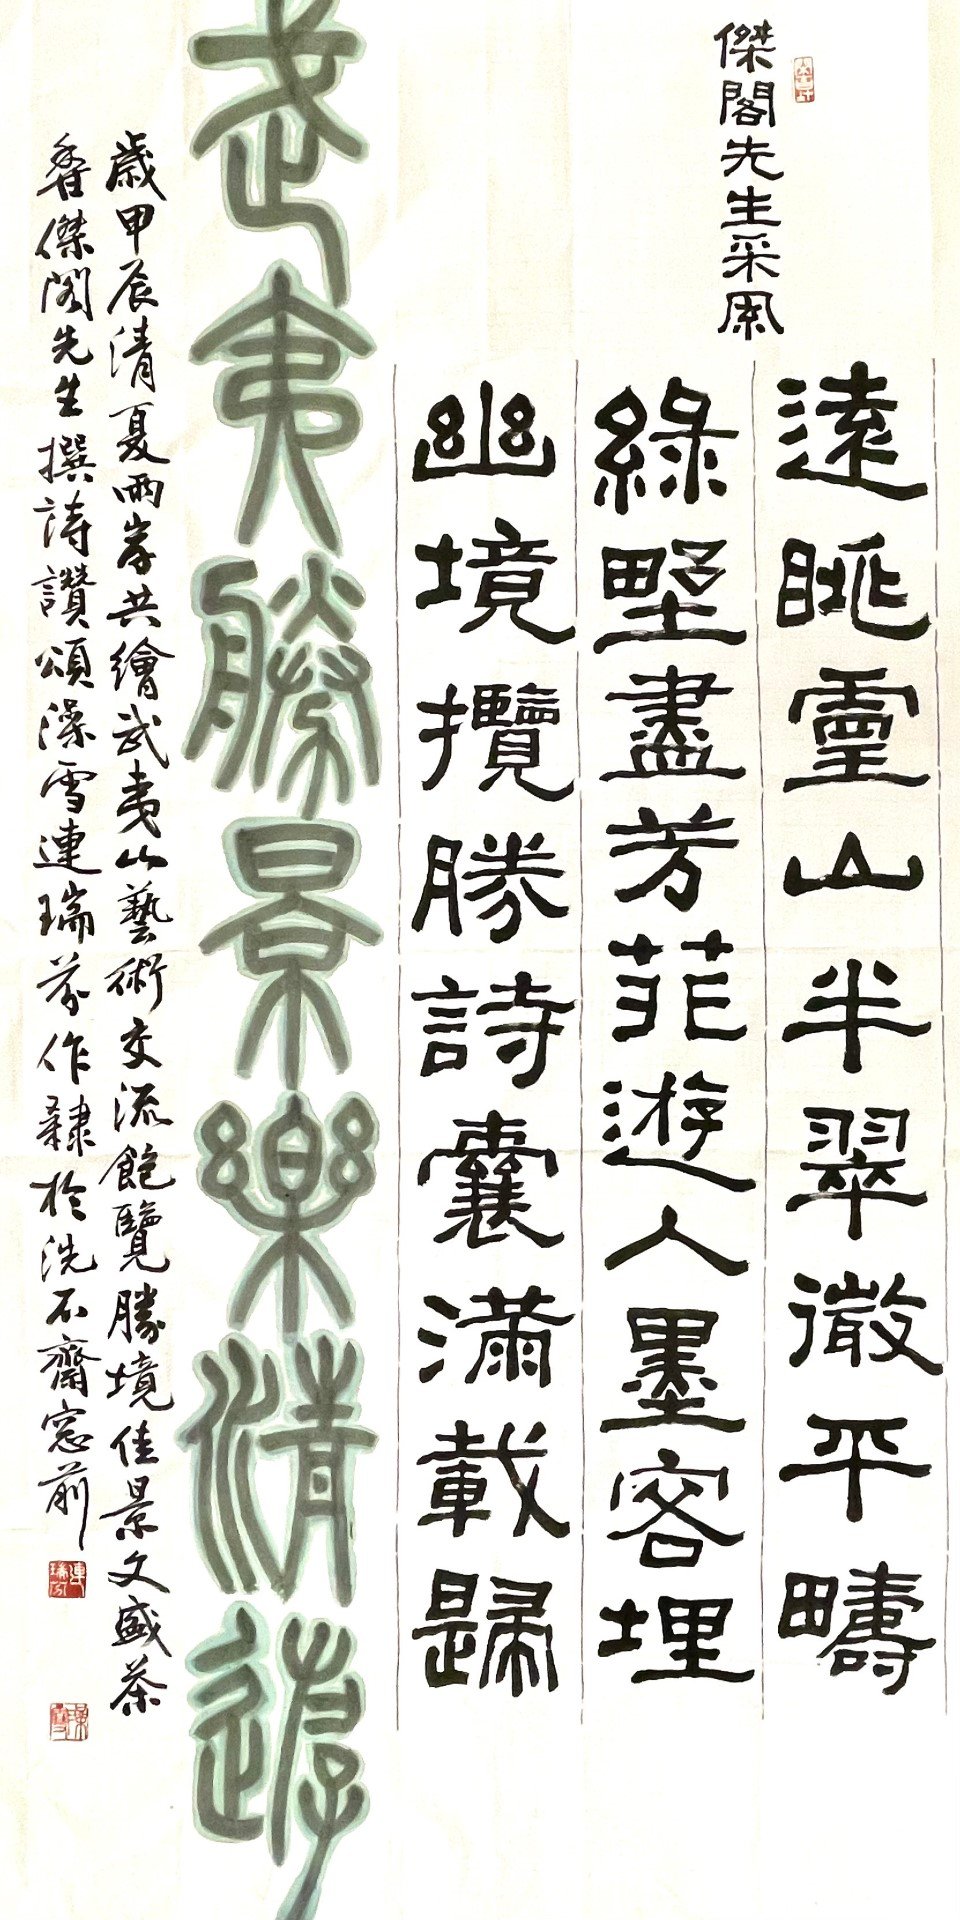 傑閣先生采風
遠眺靈山半翠微平疇
綠野盡芳菲遊人墨客埋
幽境攬勝詩囊滿載歸
武夷勝景樂清遊
歲甲辰清夏兩岸共繪武夷山藝術交流飽覽勝境佳景文盛茶
香傑閣先生撰詩讚頌澡雪連瑞芬作隸於洗石齋窓前
連瑞芬